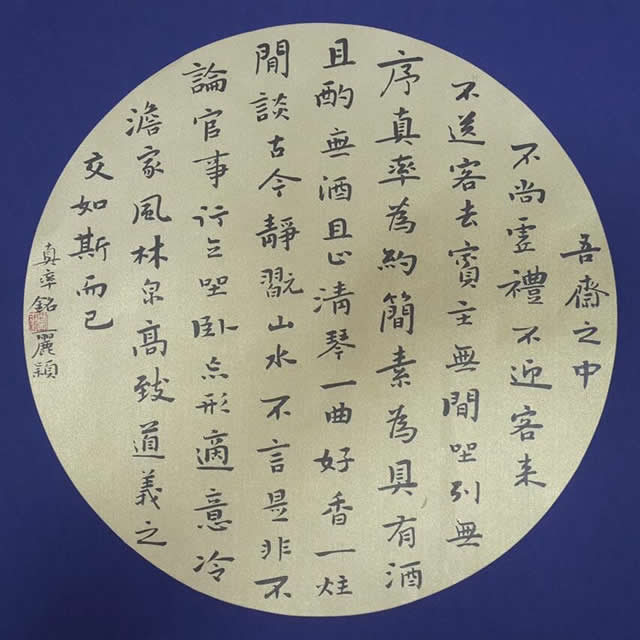 吾齋之中
不尚虛禮不迎客来
不送客去賓主無間坐列無
序真率為約簡素為具有酒
且酌無酒且止清琴一曲好香一炷
閒談古今靜翫山水不言是非不
論官事行立坐卧忘形適意冷
澹家風林泉高致道義之
交如斯而已
真率銘麗穎